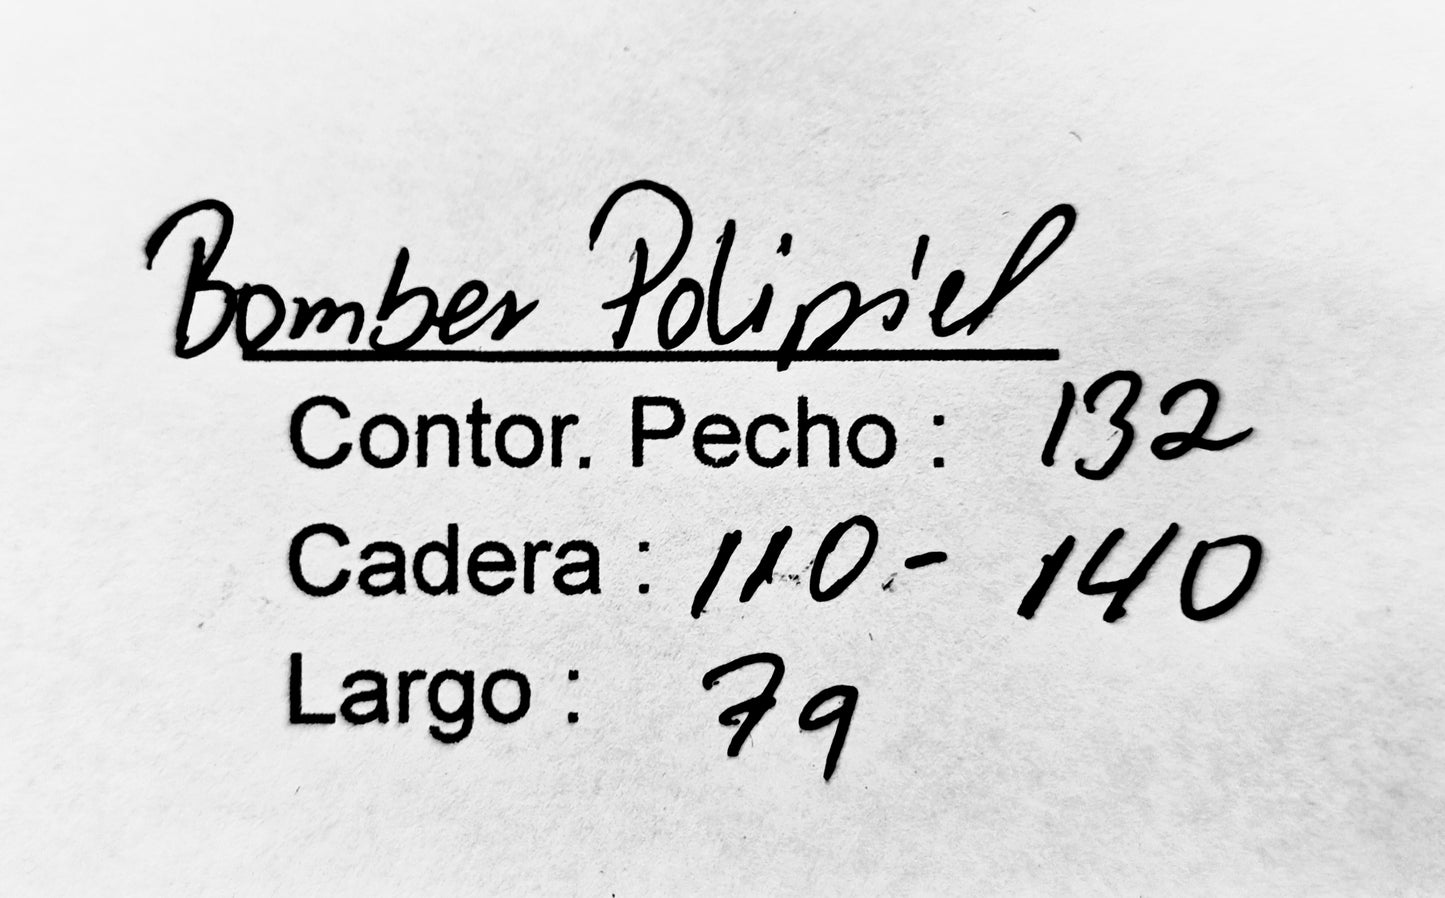 Bomber Polipiel
Contor. Pecho : 132
Cadera : 110 - 140
Largo : 79